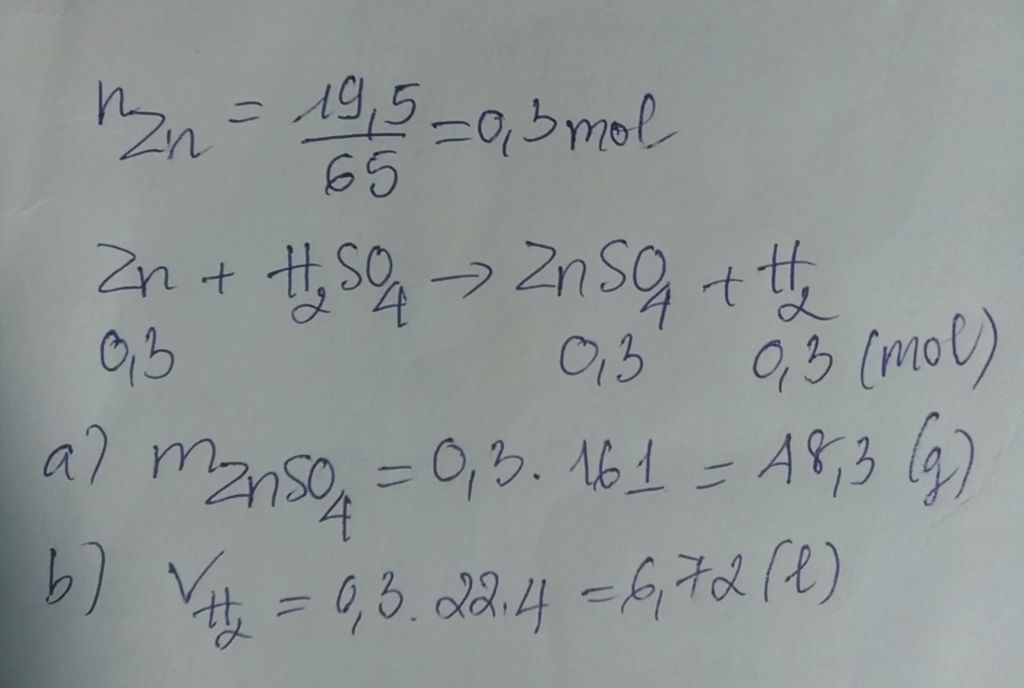 nZn = 19,5/65 = 0,3 mol
Zn + H2SO4 → ZnSO4 + H2
0,3 0,3 0,3 (mol)
a) mZnSO4 = 0,3. 161 = 48,3 (g)
b) VH2 = 0,3. 22.4 = 6,72 (l)